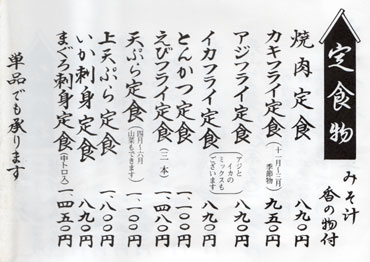 定食物
みそ汁
香の物付
焼肉定食 八九〇円
カキフライ定食 (十一月〜三月)季節物 九五〇円
アジフライ定食 八九〇円
(アジとイカのミックスもございます)
イカフライ定食 八九〇円
とんかつ定食 一、一〇〇円
えびフライ定食(二本) 一、〇〇〇円
天ぷら定食 (四月〜六月山菜もできます) 一、一〇〇円
上天ぷら定食 一、八〇〇円
いか刺身定食 八九〇円
まぐろ刺身定食(中トロ入) 一、四五〇円
単品でも承ります